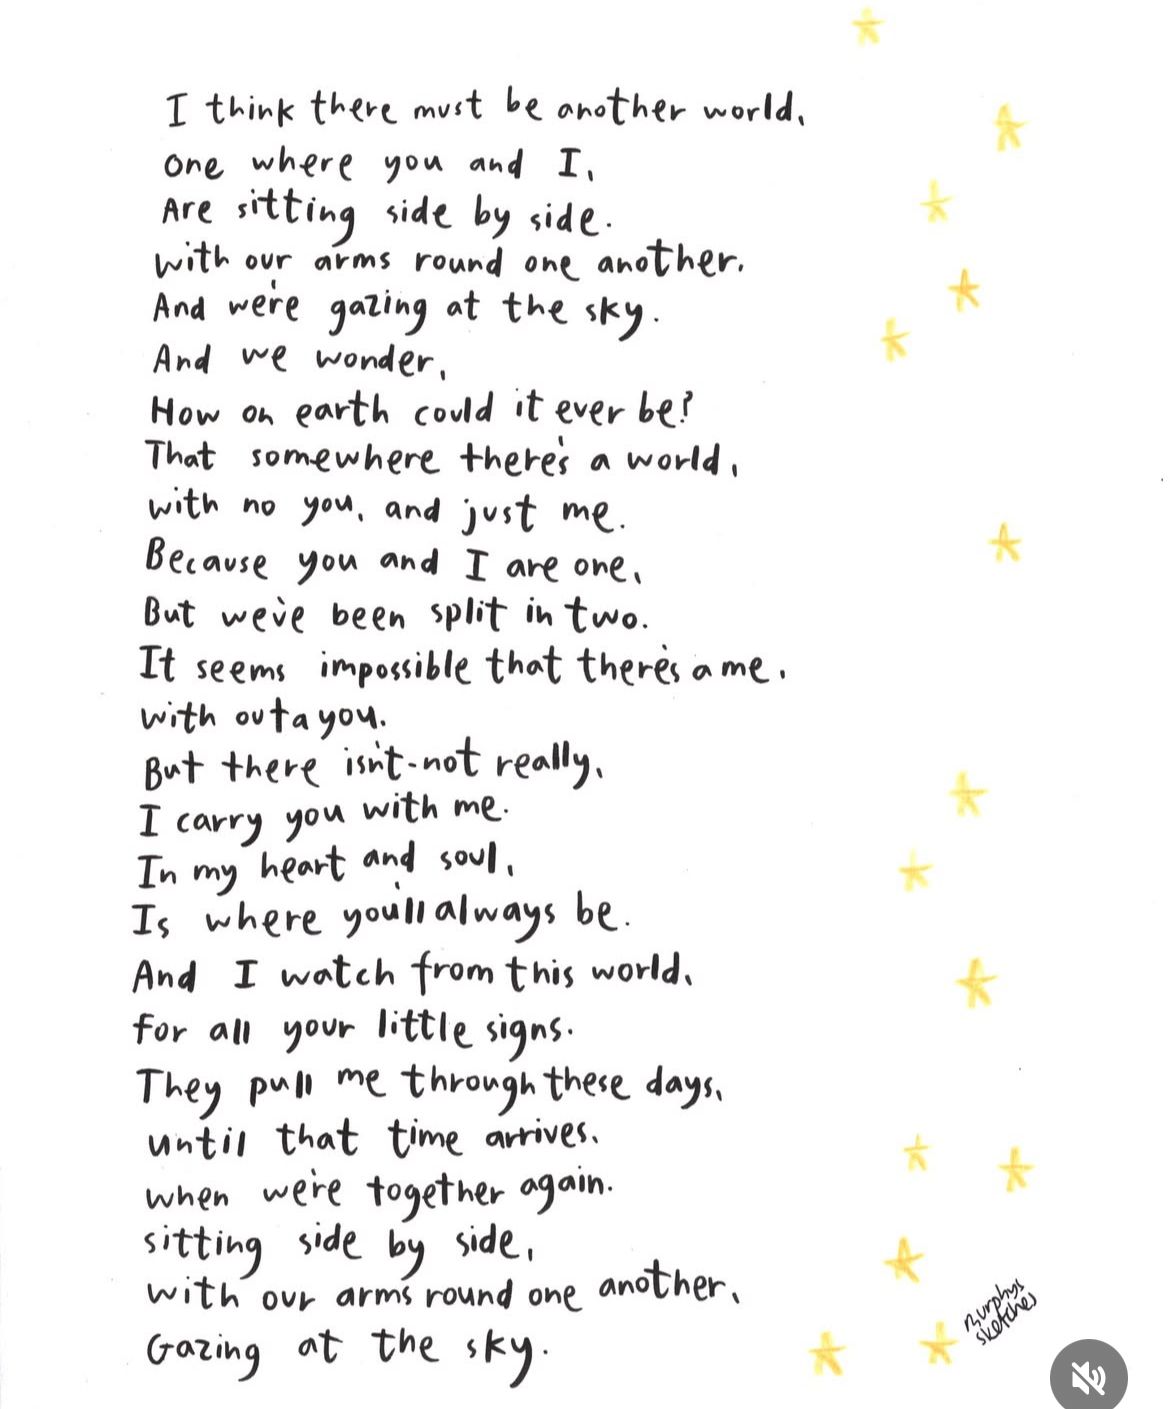 I think there must be another world,
one where you and I,
Are sitting side by side.
with our arms round one another.
And we're gazing at the sky.
And we wonder,
How on earth could it ever be?
That somewhere there's a world,
with no you, and just me.
Because you and I are one,
But we've been split in two.
It seems impossible that there's a me,
with out a you.
But there isn't-not really,
I carry you with me.
In my heart and soul,
Is where you'll always be.
And I watch from this world,
for all your little signs.
They pull me through these days,
until that time arrives.
when we're together again.
sitting side by side,
with our arms round one another,
Gazing at the sky.
Murphys
sketches